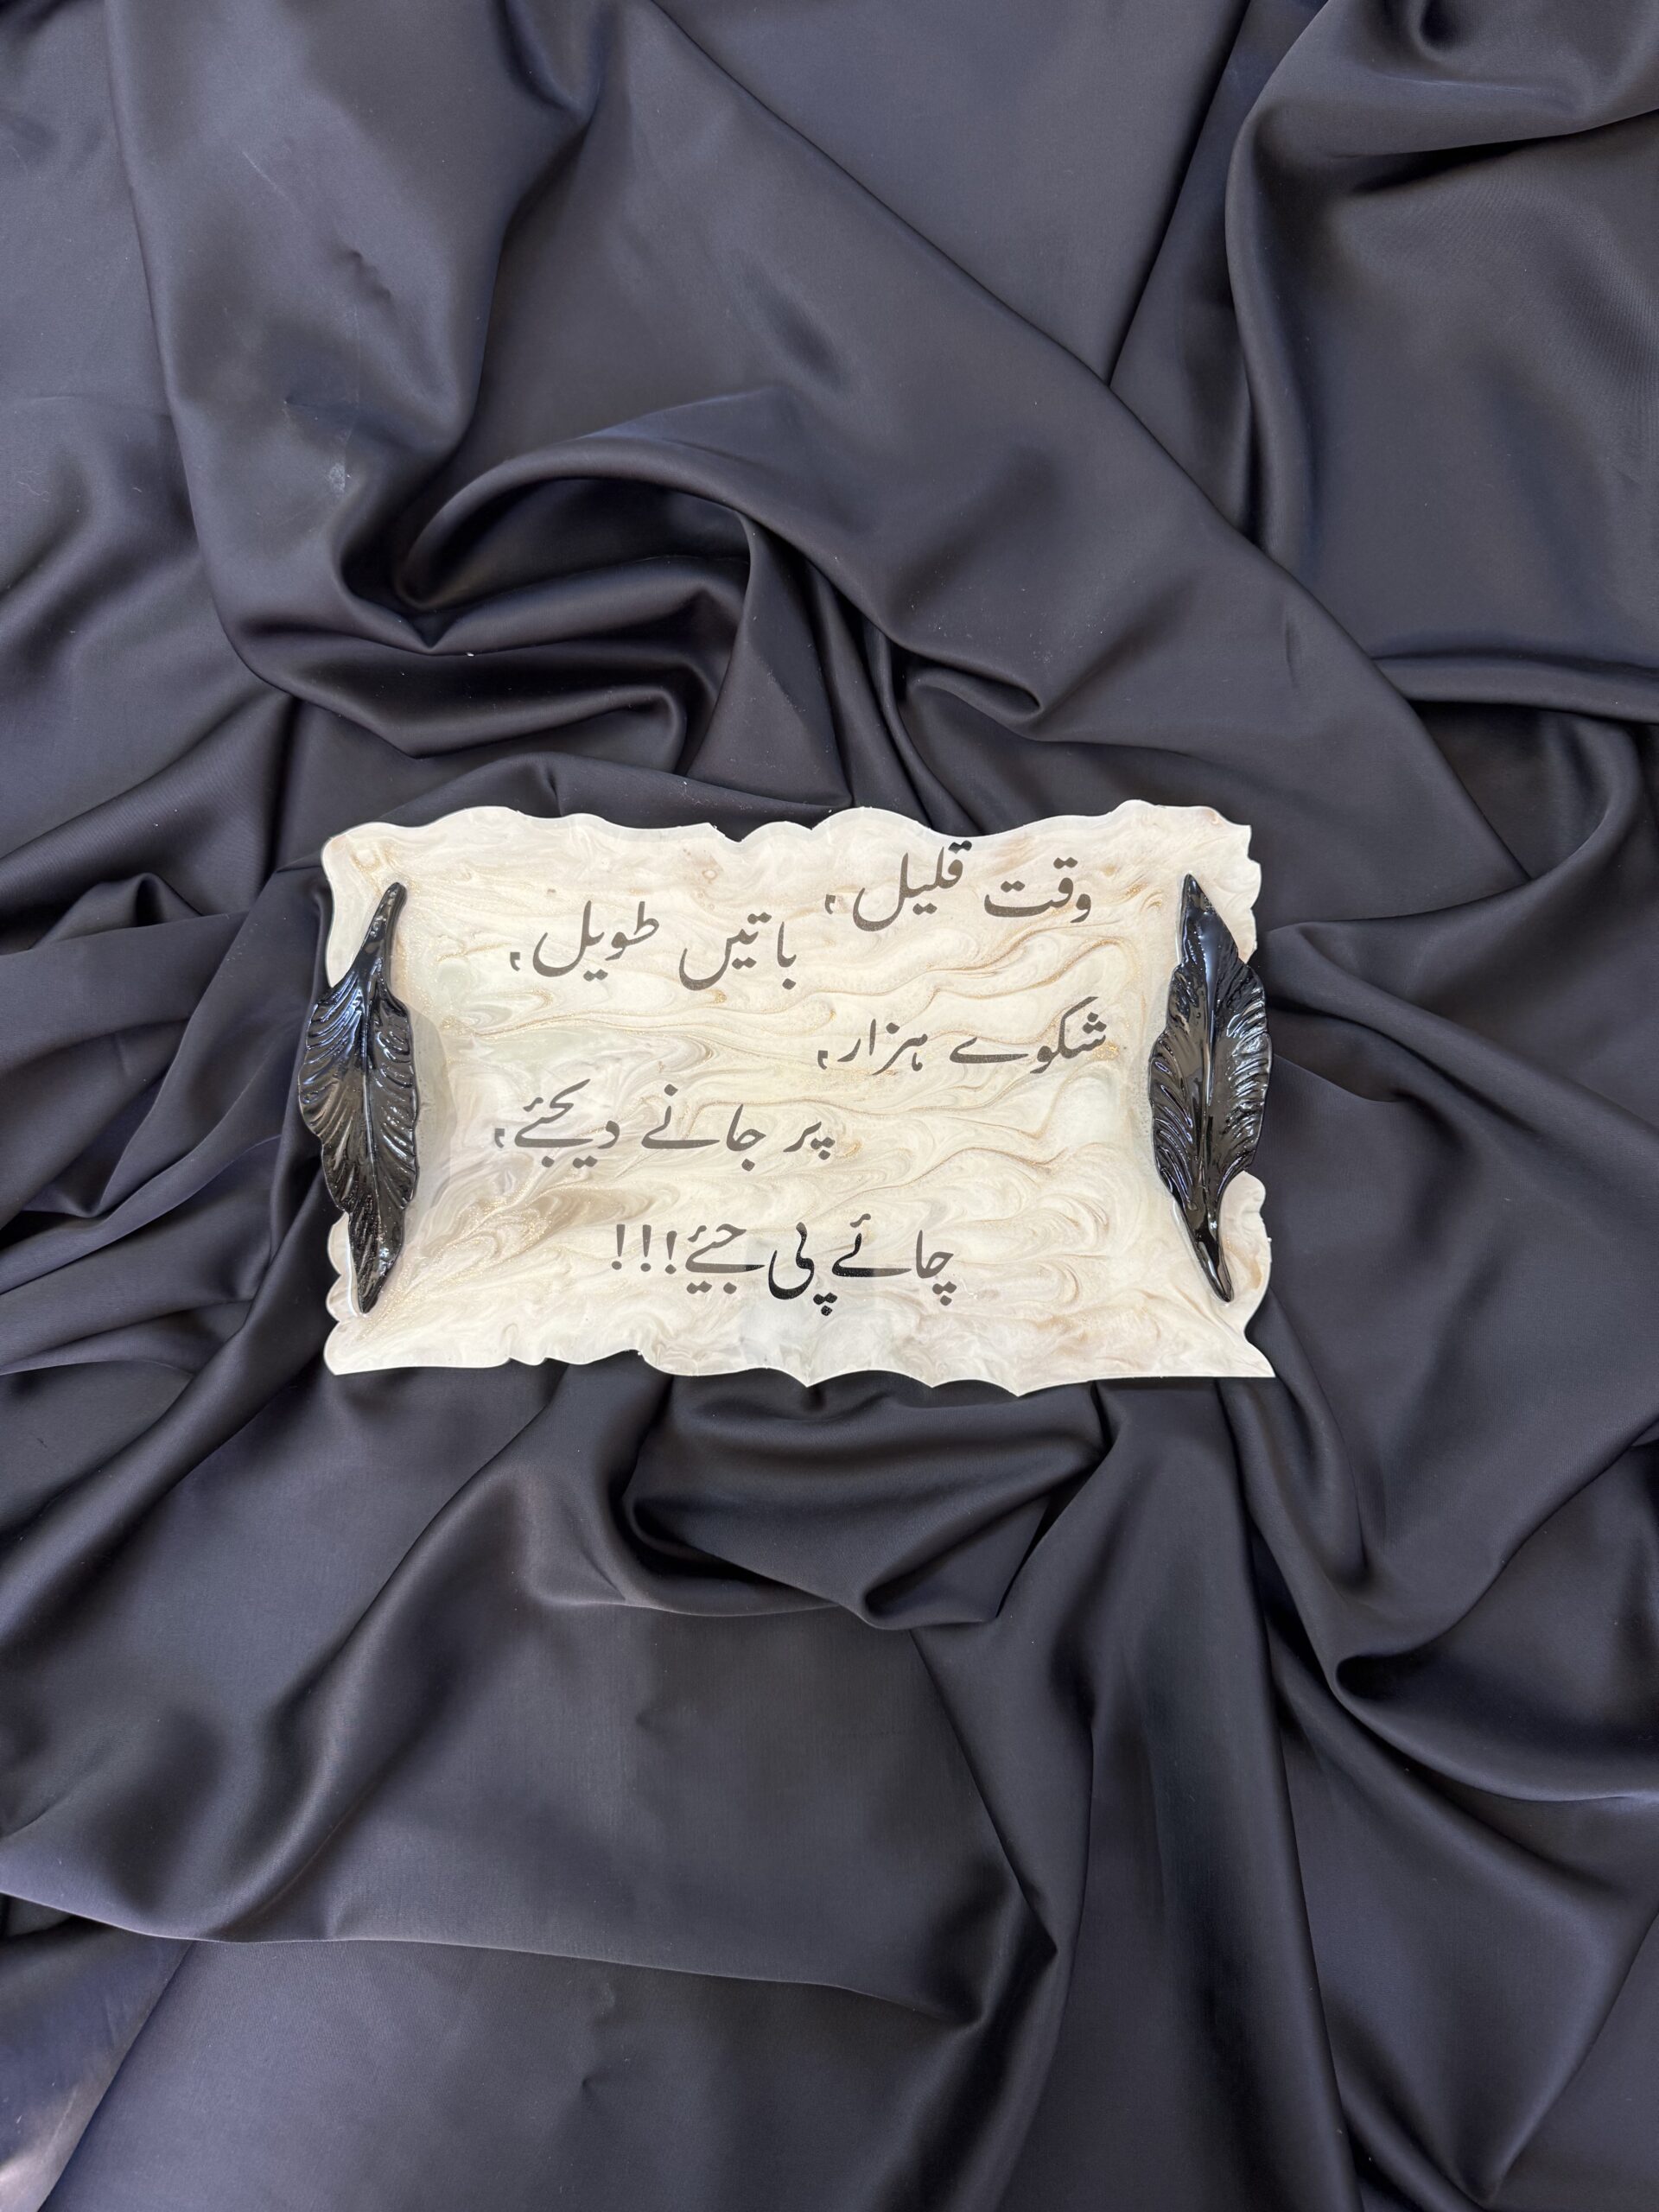 وقت قلیل،
باتیں طویل،
شکوے ہزار،
پر جانے دیجئے،
چائے پی جیئے!!!